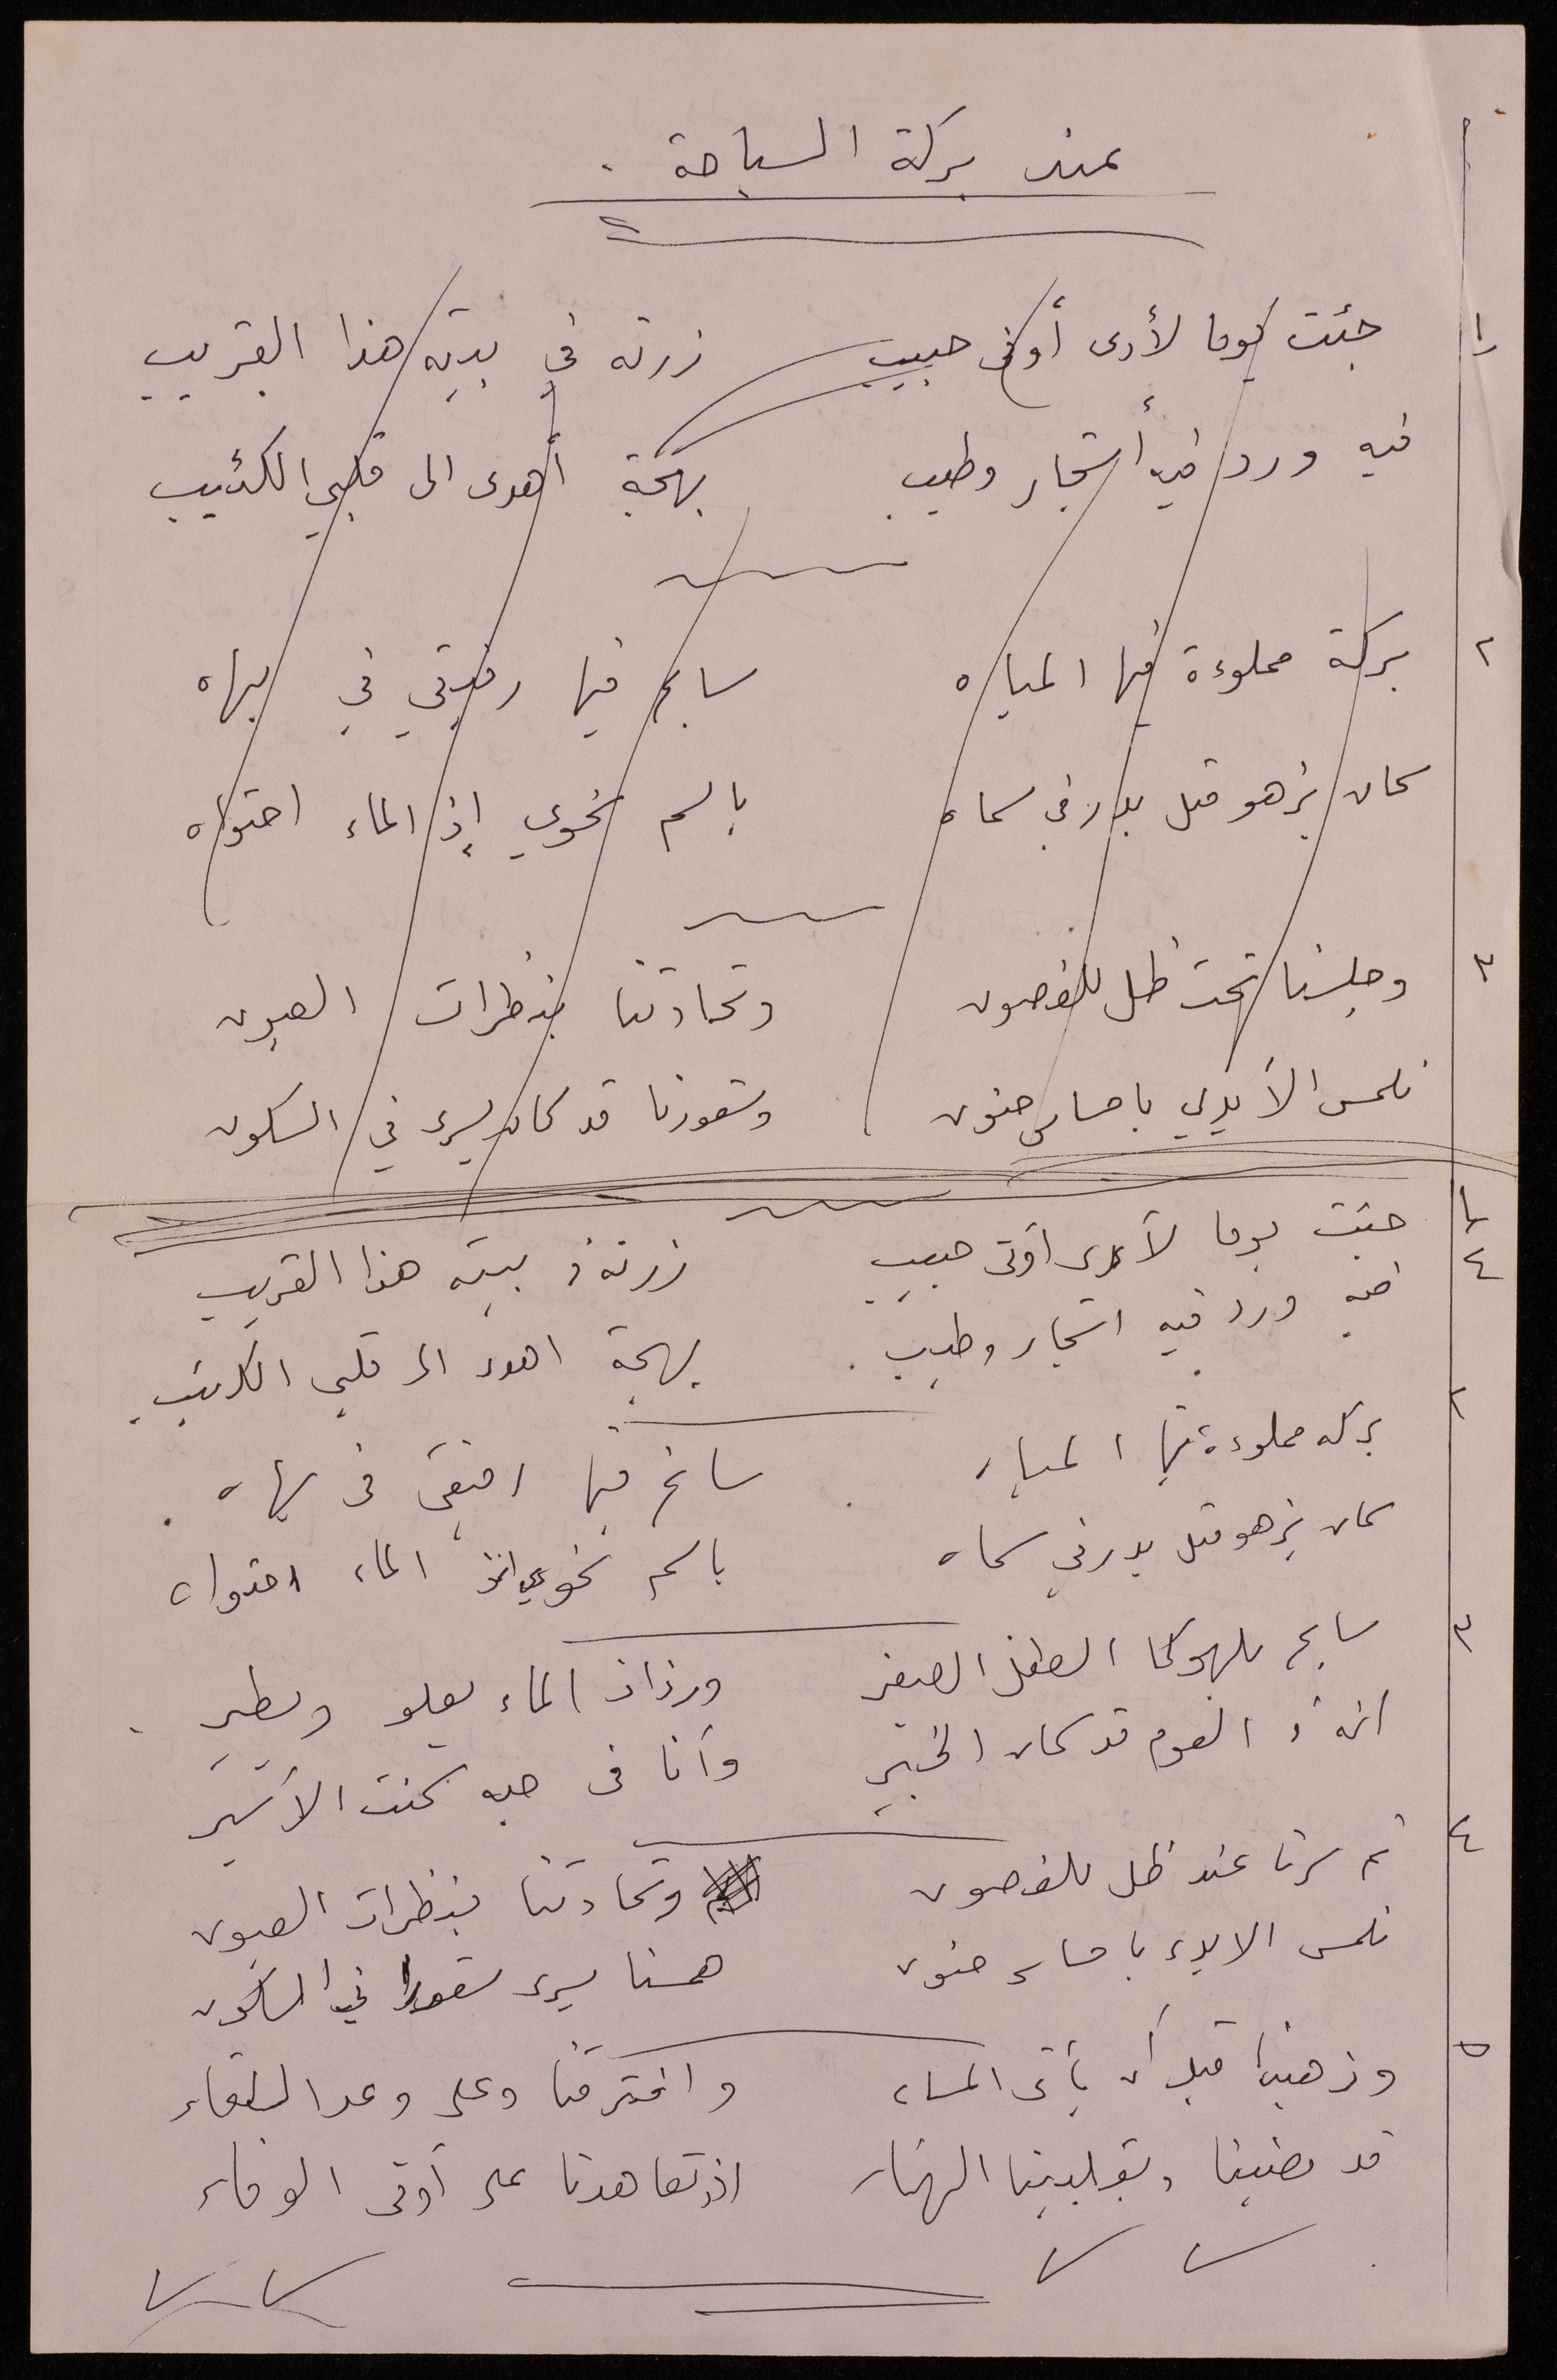 عند بركة السباحة .
١ جئت يوما لأرى أوفى حبيب زرته في بيته هذا القريب
فيه ورد فيه أشجار وطيب بهجة أهدى الى قلبي الكئيب
٢ بركة مملوءة فيها المياه سابح فيها رفيقي في بهاه
كان يزهو مثل بدر في سماه باسم نحوي إذ الماء احتواه
٣ وجلسنا تحت ظل للغصون وتحادثنا بنظرات العيون
نلمس الأيدي باحساس حنون وشعورنا قد كان يسري في السكون
١ جئت يوما لأرى أوفى حبيب زرته في بيته هذا القريب
فيه ورد فيه اشجار وطيب . بهجة اهدى الى قلبي الكئيب .
٢ بركه مملوءة فيها المياه سابح فيها رفيقي في بهاه .
كان يزهو مثل بدر في سماه باسم نحوي اذ الماء احتواه
٣ سابح يلهو كما الطفل الصغير ورذاذ الماء يعلو ويطير
انه في العوم قد كان الخبير وأنا في حبه كنت الأسير
٤ ثم سرنا عند ظل للغصون وتحادثنا بنظرات العيون
نلمس الايدي باحساس حنون همسنا يسري شعورا في السكون
٥ وذهبنا قبل أن يأتى المساء وافترقنا وعلى وعد اللقاء
قد مضينا وبقلبينا الهناء اذ تعاهدنا على أوفى الوفاء